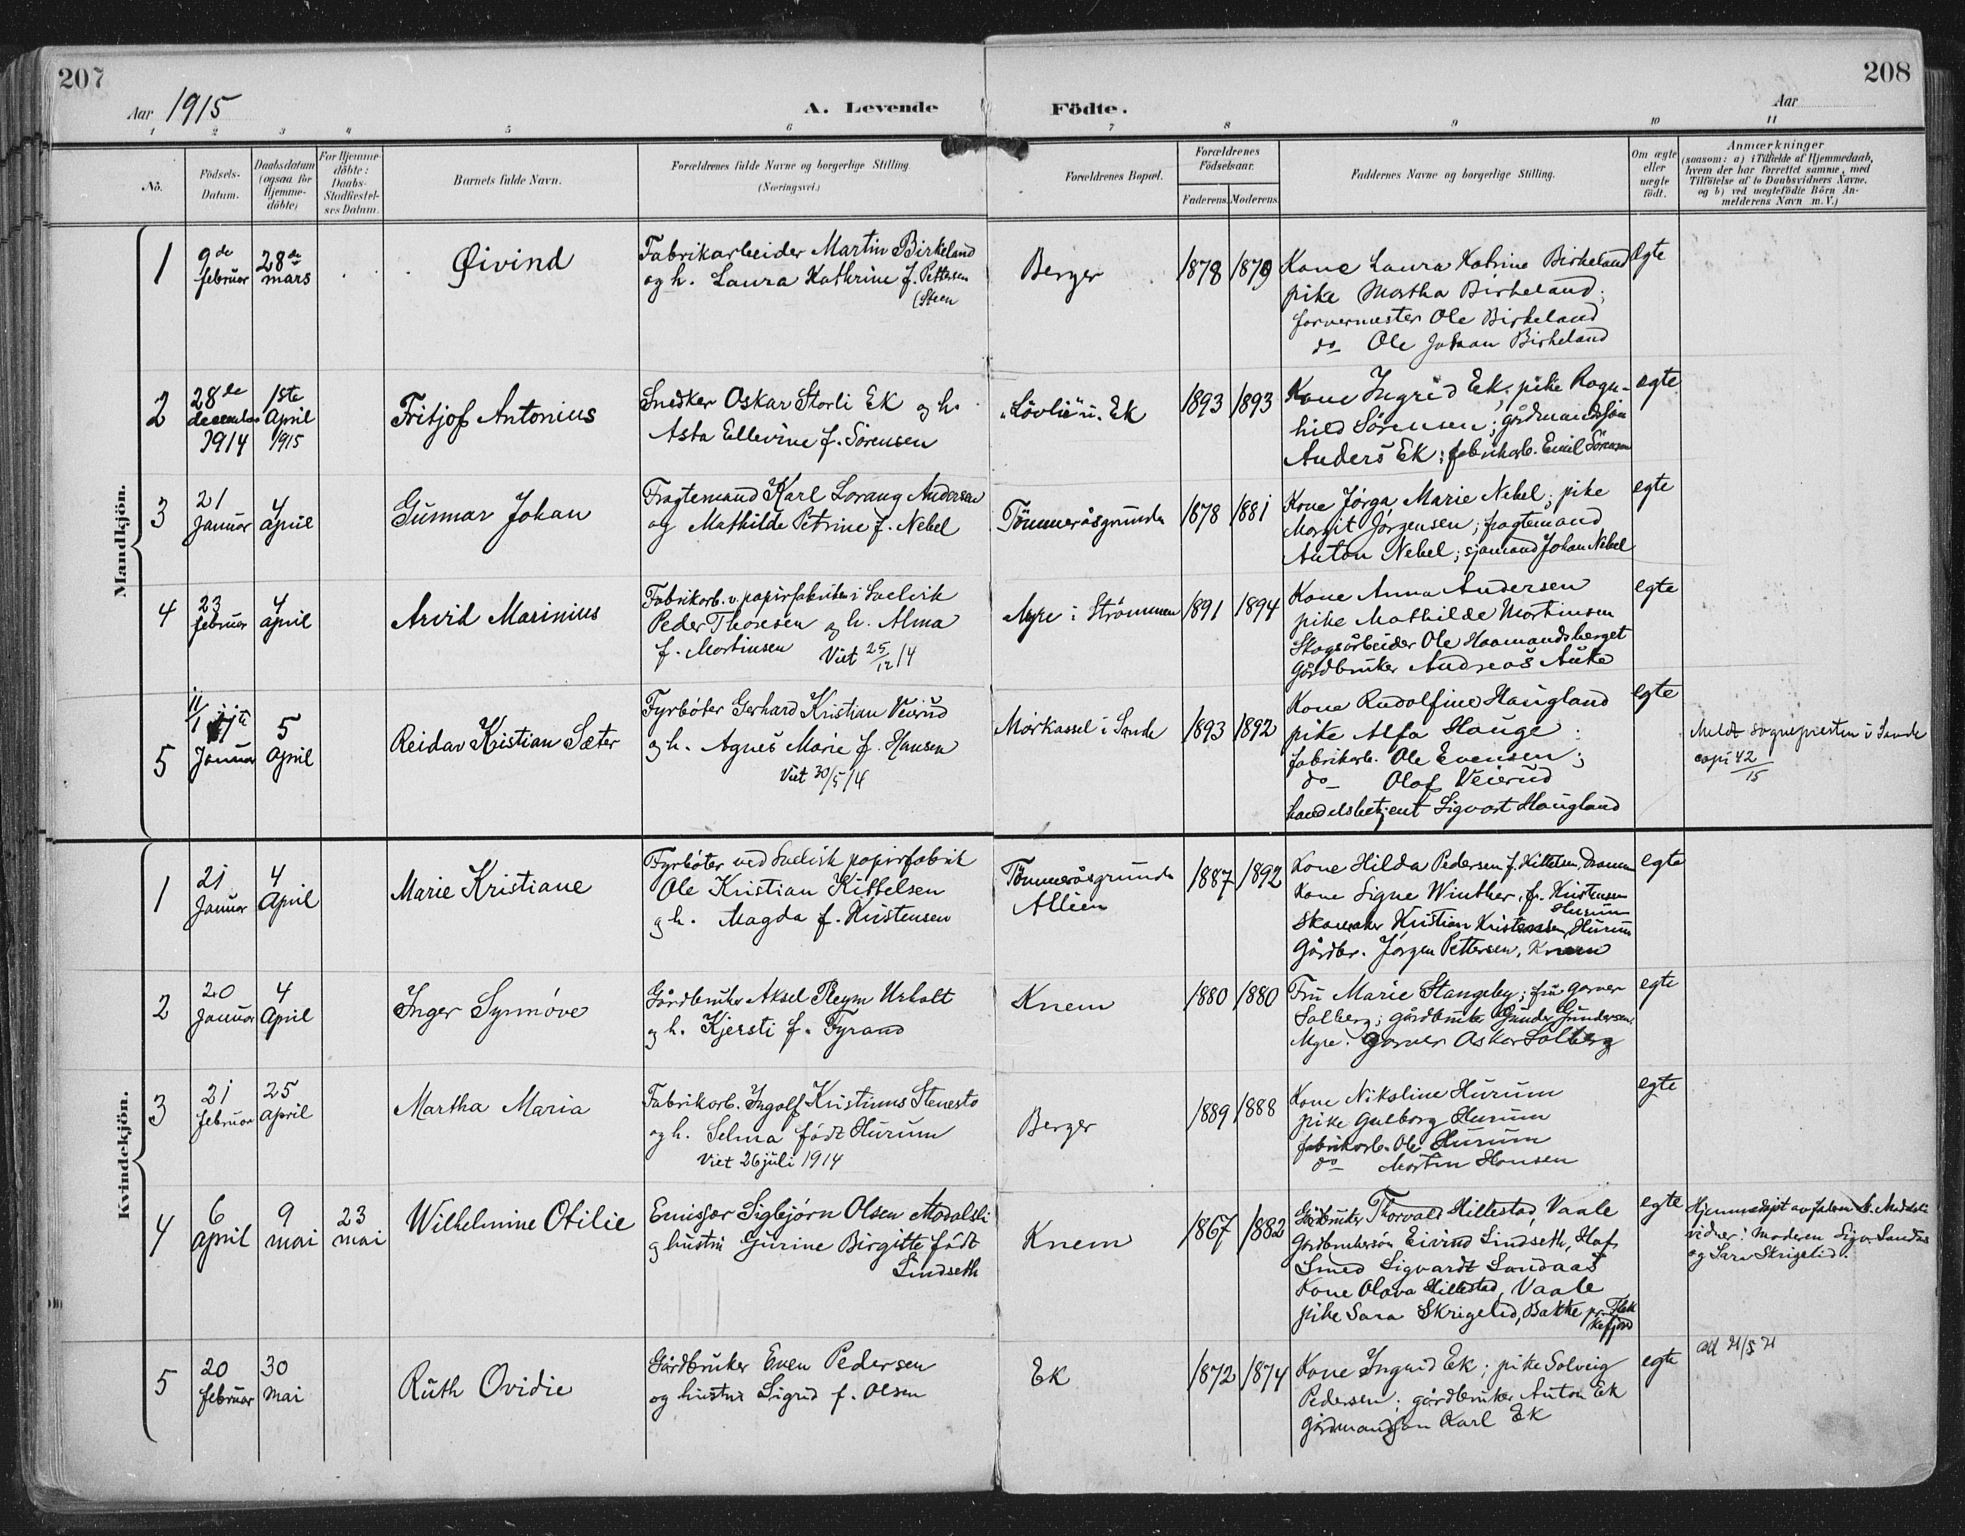 207
208
Aar 1915
A. Levende
Födte.
Aar
1 2 3 4 5 6 7 8 9 10 11
No.
Födsels-
Datum.
Daabsdatum
(ogsaa for
Hjemme-
döbte)
For Hjemme-
döbte:
Daabs-
Stadfæstel-
ses Datum.
Barnets fulde Navn.
Forældrenes fulde Navne og borgerlige Stilling
(Næringsvei.)
Forældrenes Bopæl.
Forældrenes
Födselsaar.
Faderens. Moderens.
Faddernes Navne og borgerlige Stilling.
Om ægte
eller
uægte
födt.
Anmærkninger
(saasom: a) i Tilfælde af Hjemmedaab,
hvem der har forrettet samme, med
Tilföielse af to Daabsvidners Navne.
og b) ved uægtefödte Börn An-
melderens Navn m. V.)
Mandkjön.
1
9de
februar
28de
mars
Øivind
Fabrikarbeider Martin Birkeland
og h. Laura Kathrine f. Pettersen
(Steen
Berger
1878
1879
Kone Laura Katrine Birkeland
pike Martha Birkeland;
farvermester Ole Birkeland
do Ole Johan Birkeland
egte
2
28de
december
1914
1ste
April
1915
Fritjof Antonius
Snedker Oskar Storli Ek og h.
Asta Ellevine f. Sörensen
"Lövli" u. Ek
1893
1893
Kone Ingrid Ek; pike Ragn-
hild Sörensen; gårdmandssön
Anders Ek; fabrikarb. Emil Sörensen
egte
3
21
Januar
4
april
Gunnar Johan
Fragtemand Karl Lorang Andersen
og Mathilde Petrine f. Nebel
Tömmeråsgrunden
1878
1881
Kone Jørga Marie Nebel; pike
Margit Jørgensen; fragtemand
Anton Nebel; sjømand Johan Nebel
egte
4
23
februar
4
april
Arvid Marinius
Fabrikarb. v. papirfabriken i Svelvik
Peder Thoresen og h. Alma
f. Martinsen Viet 25/12 14
Myre i Strömmen
1891
1894
Kone Anna Andersen
pike Mathilde Martinsen
Skogsarbeider Ole Haamandsberget
Gårdbruker Andreas Auke
egte
5
11/1
Januar
5
April
Reidar Kristian Sæter
Fyrbøter Gerhard Kristian Veierud
og h. Agnes Marie f. Hansen
Viet 30/5 14
Mörkassel i Sande
1893
1892
Kone Rudolfine Haugland
pike Alfa Hauge;
fabrikarb. Ole Evensen;
do Olaf Veierud
handelsbetjent Sigvart Haugland
egte
Meldt sognepresten i Sande
copi 42/15
Kvindekjön.
1
21
Januar
4
April
Marie Kristiane
Fyrbøter ved Svelvik papirfabrik
Ole Kristian Kittelsen
og h. Magda f. Kristensen
Tömmeråsgrunden
Alléen
1887
1892
Kone Hilda Pedersen f. Kittelsen, Drammen
Kone Signe Winther, f. Kristensen
Hurum
Skomaker Kristian Kristensen, Hurum
Gårdbr. Jørgen Pettersen, Knem
egte
2
20
Januar
4
April
Inger Synnöve
Gårdbruker Aksel Reym Urholt
og h. Kjersti f. Fyrand
Knem
1880
1880
Fru Marie Stangeby; fru garver
Solberg; gårdbruker Gunder Gundersen
Myre. Garver Oskar Solberg
egte
3
21
februar
25
april
Martha Maria
Fabrikarb. Ingolf Kristinus Stenesto
og h. Selma född Hurum
Viet 26 juli 1914
Berger
1889
1888
Kone Nikoline Hurum
pike Gulborg Hurum
fabrikarb. Ole Hurum
do Martin Hansen
egte
4
6
april
9
mai
23
mai
Wilhelmine Otilie
Emisjær Sigbjørn Olsen Modalsli
og hustru Gurine Birgitte född
Lindseth
Knem
1867
1882
Gårdbruker Thorvald Hillestad, Vaale
Gårdbrukersön Eivind Lindseth, Hof
Smed Sigvardt Sandaas
Kone Olava Hillestad, Vaale
pike Sara Skrigelid, Bakke pr. Flek-
kefjord
egte
Hjemmedöpt av faderen
vidner: moderen Sigv. Sandås
og Sara Skrigelid.
5
20
februar
30
mai
Ruth Ovidie
Gårdbruker Even Pedersen
og hustru Sigrid f. Olsen
Ek
1872
1874
Kone Ingrid Ek; pike Solveig
Pedersen; gårdbruker Anton Ek
Gårdmandssön Karl Ek
egte